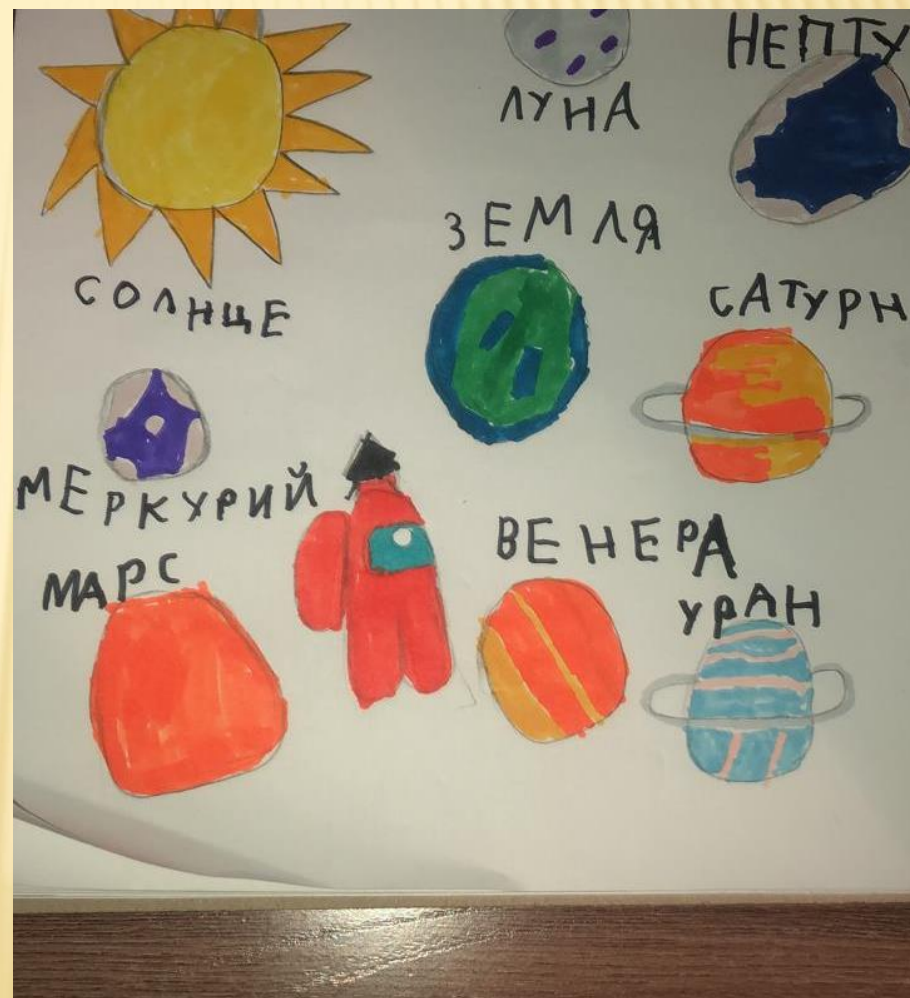 ЛУНА
НЕПТУ
ЗЕМЛЯ
СОЛНЦЕ
САТУРН
МЕРКУРИЙ
ВЕНЕРА
МАРС
УРАН